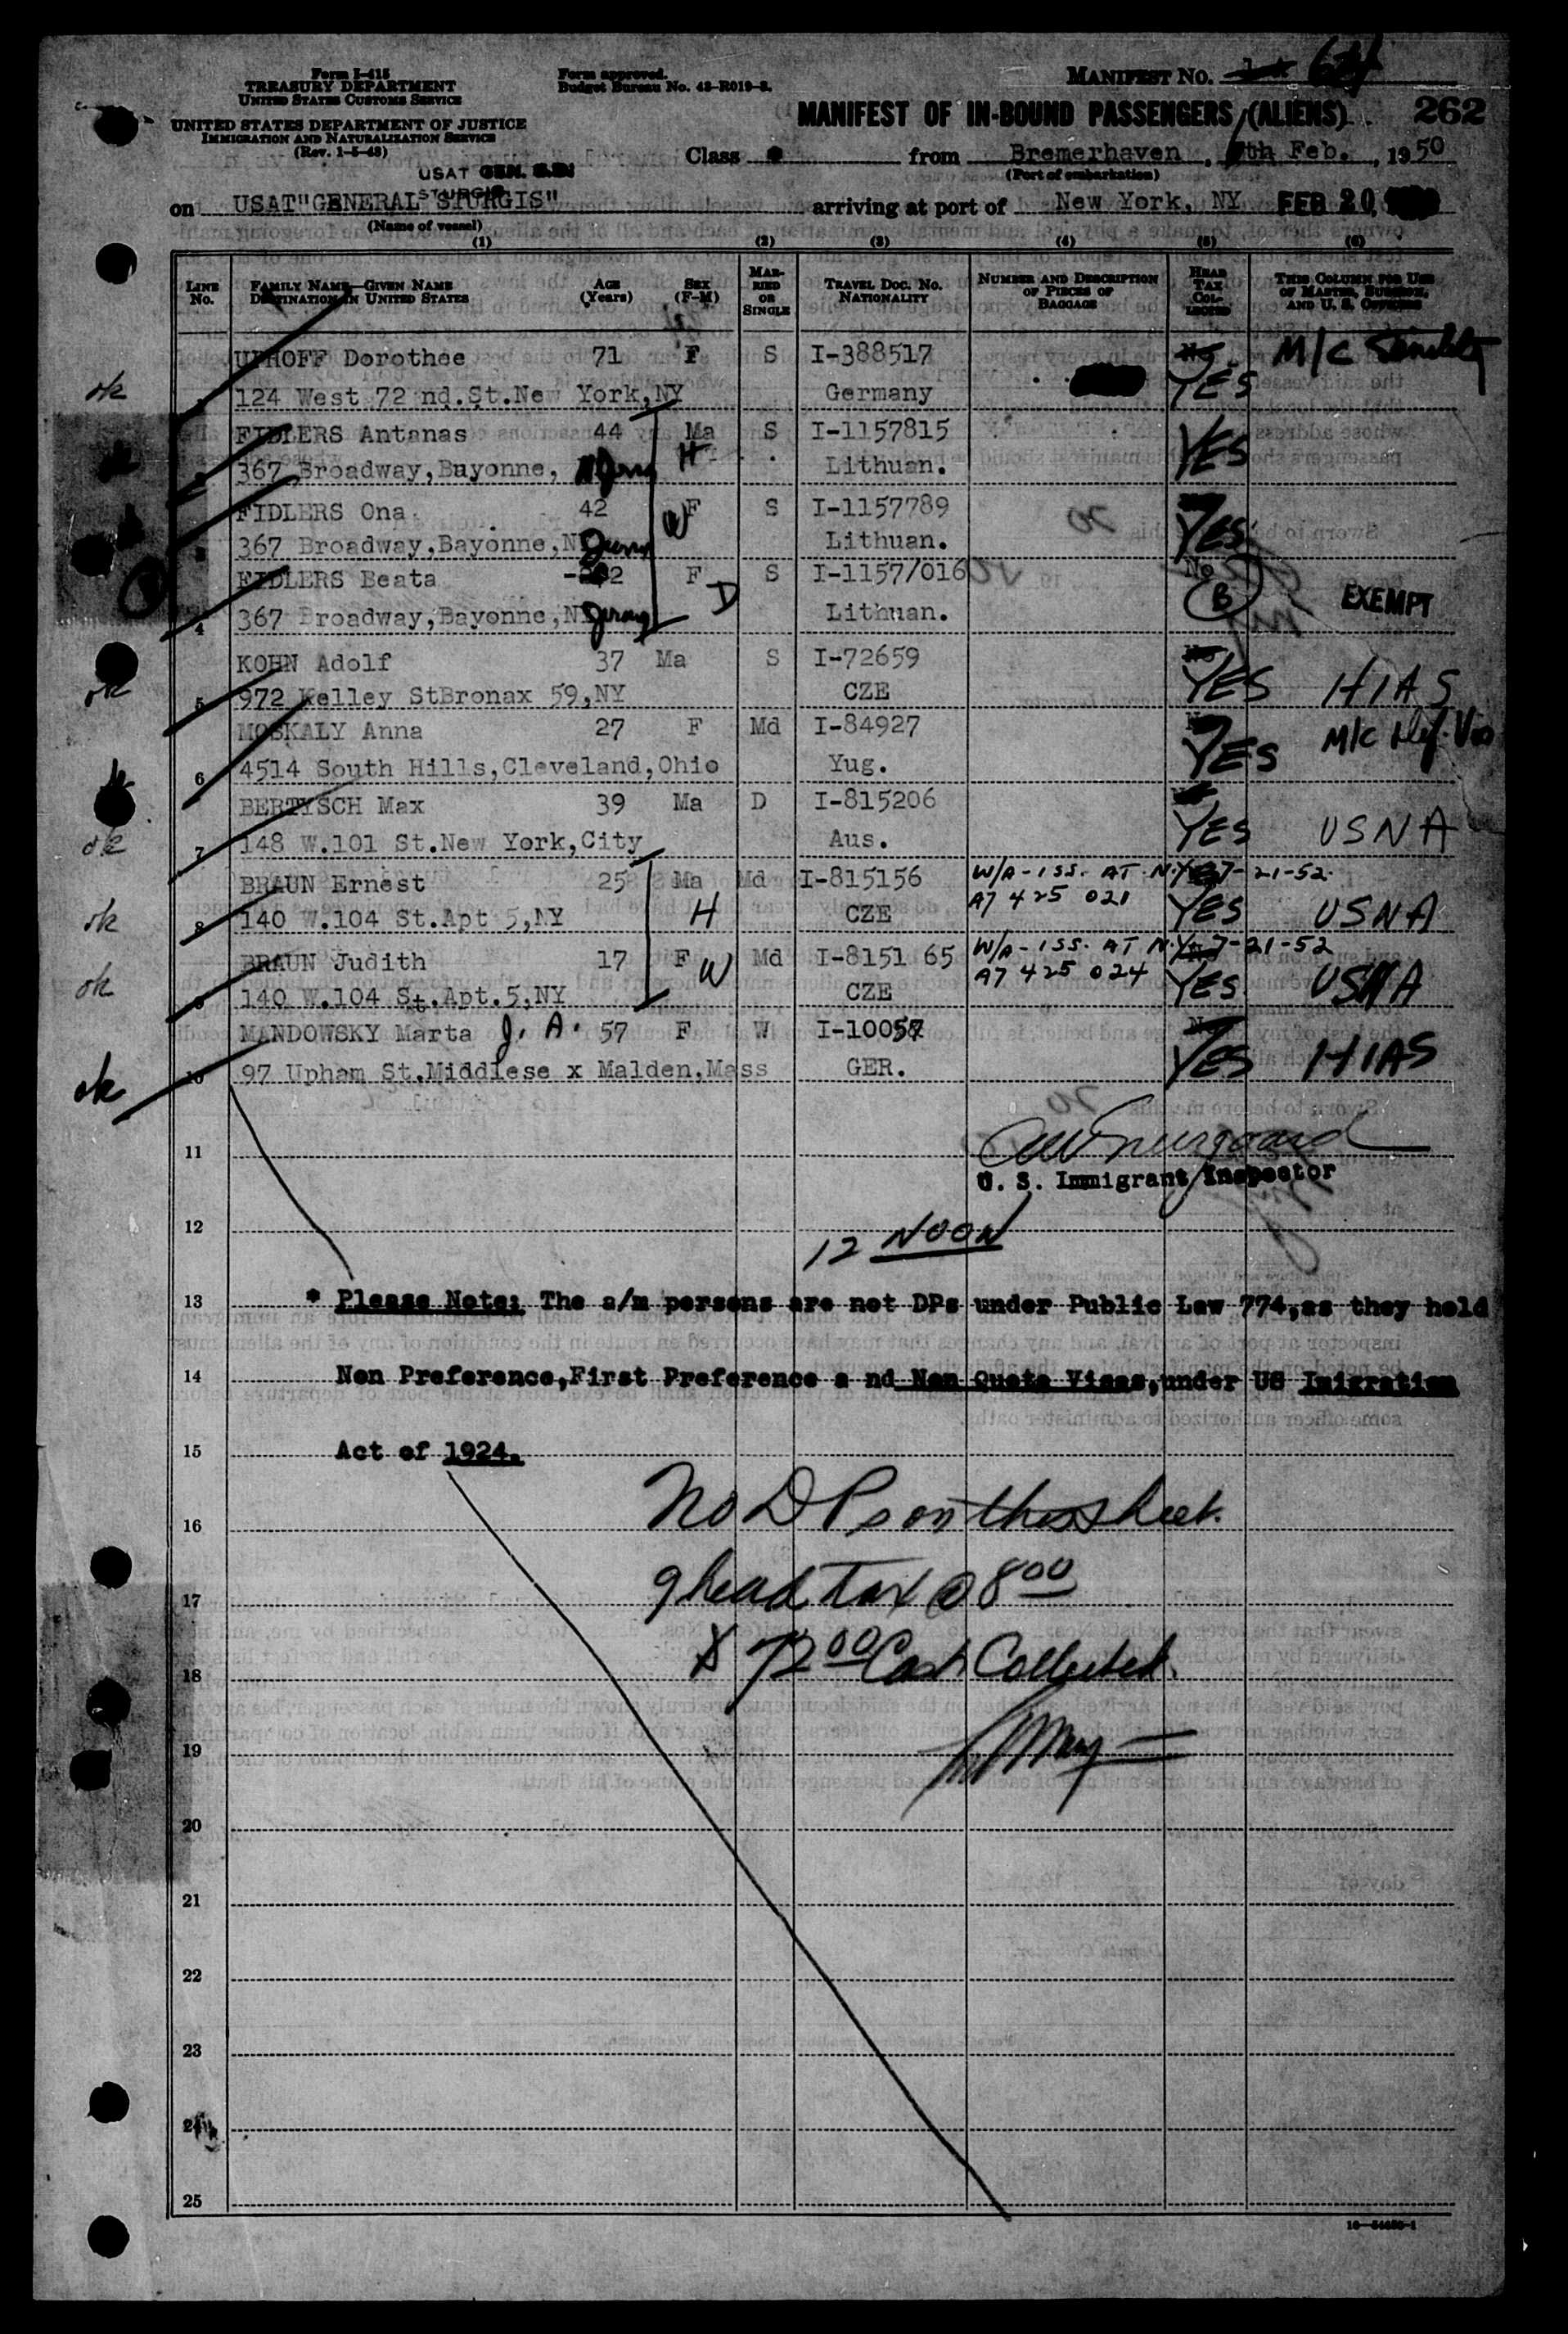 Form I-415
TREASURY DEPARTMENT
UNITED STATES CUSTOMS SERVICE
UNITED STATES DEPARTMENT OF JUSTICE
IMMIGRATION AND NATURALIZATION SERVICE
(Rev. 1-5-48)
Form approved.
Budget Bureau No. 43-R019-8.
MANIFEST NO.
MANIFEST OF IN-BOUND PASSENGERS (ALIENS) 262
Class from Bremerhaven, 7th Feb., 1950
(Port of embarkation)
USAT GEN. S.D.
STURGIS
on USAT"GENERAL STURGIS" arriving at port of New York, NY FEB 20,
(Name of vessel)
(1) (2) (3) (4) (5) (6)
LINE No. FAMILY NAME—GIVEN NAME DESTINATION IN UNITED STATES AGE (Years) SEX (F-M) MARRIED OR SINGLE TRAVEL DOC. NO. NATIONALITY NUMBER AND DESCRIPTION OF PIECES OF BAGGAGE HEAD TAX COLLECTED THIS COLUMN FOR USE OF MASTER, SURGEON, AND U. S. OFFICERS
UPHOFF Dorothee 71 F S I-388517 No M/C Senility
ok 124 West 72 nd.St.New York,NY Germany YES
FIDLERS Antanas 44 Ma S I-1157815 YES
367 Broadway,Bayonne, N Jersey H Lithuan.
FIDLERS Ona 42 F S I-1157789
3 367 Broadway,Bayonne,N Jersey W Lithuan. YES
FIDLERS Beata 2 F S I-1157/016 No
4 367 Broadway,Bayonne,N Jersey D Lithuan. B EXEMPT
KOHN Adolf 37 Ma S I-72659 No
ok 5 972 Kelley StBronax 59,NY CZE YES HIAS
MOSKALY Anna 27 F Md I-84927 M/C Def. Vis
6 4514 South Hills,Cleveland,Ohio Yug. YES
BERTYSCH Max 39 Ma D I-815206
ok 7 148 W.101 St.New York,City Aus. YES USNA
BRAUN Ernest 25 Ma Md I-815156 W/A-ISS. AT N.Y. 7-21-52
ok 8 140 W.104 St.Apt 5,NY H CZE A7 425 021 YES USNA
BRAUN Judith 17 F W Md I-8151 65 W/A-ISS. AT N.Y. 7-21-52
ok 9 140 W.104 St.Apt.5,NY CZE A7 425 024 YES USNA
MANDOWSKY Marta J. A. 57 F W I-10057 No
ok 10 97 Upham St.Middlese x Malden,Mass GER. YES HIAS
11
U. S. Immigrant Inspector
12 12 NOON
13 * Please Note: The a/m persons are not DPs under Public Law 774,as they hold
14 Non Preference,First Preference a nd Non Quota Visas,under US Imigration
15 Act of 1924.
16 No DPs on this sheet.
17 9 head Tax @ 8 00
18 $ 72 00 Cash Collected.
19
20
21
22
23
24
25